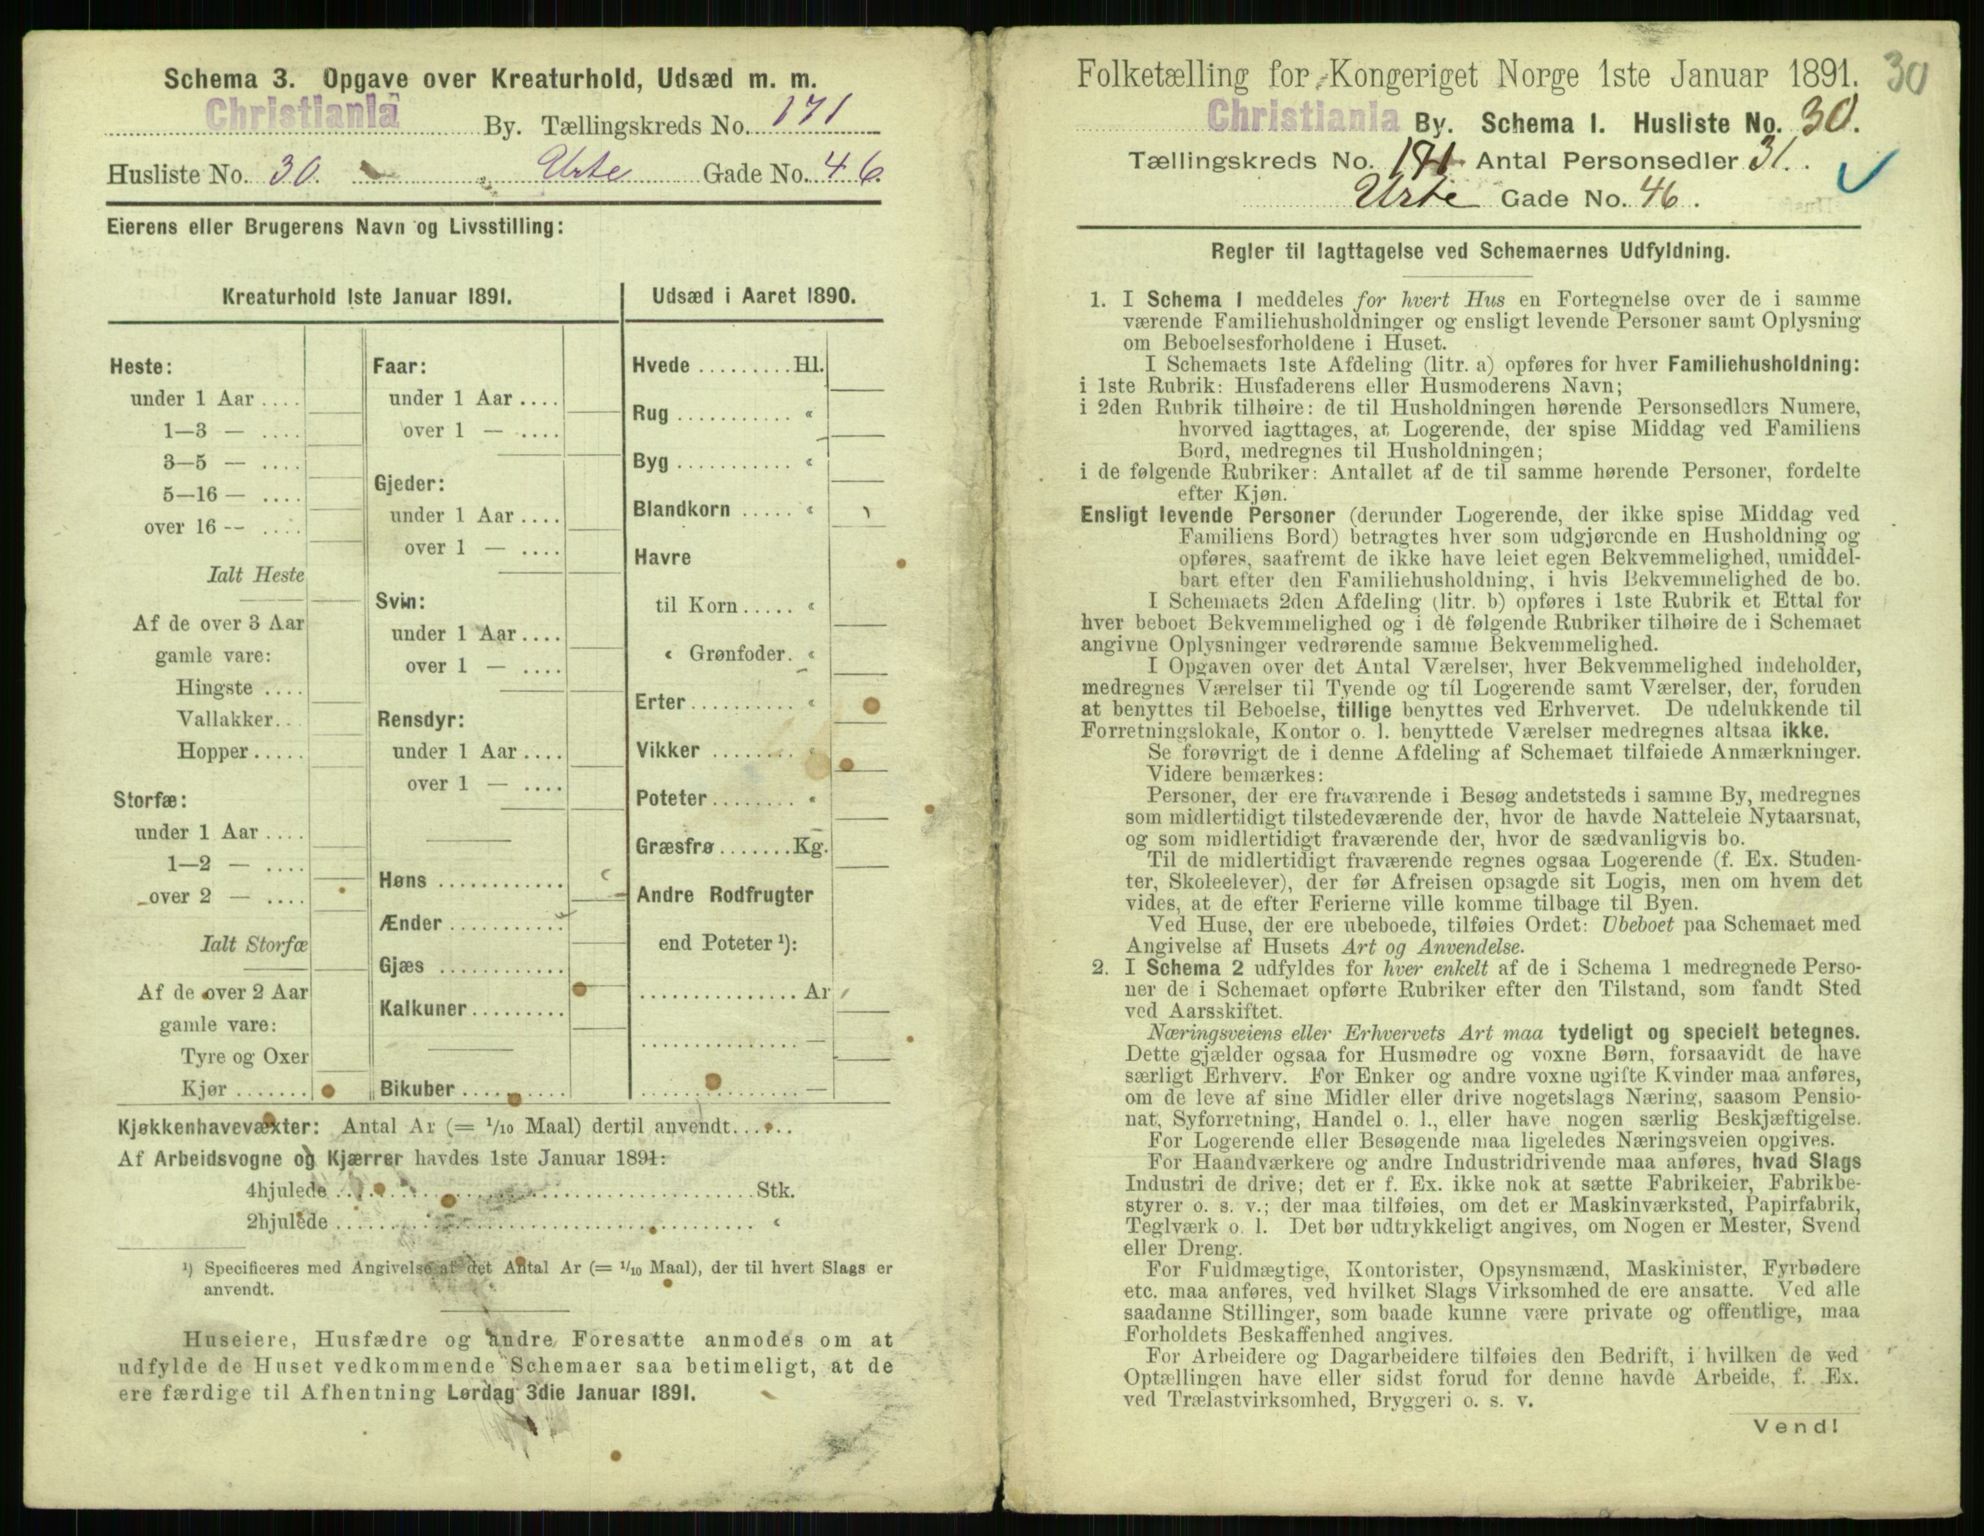 Schema 3. Opgave over Kreaturhold, Udsæd m. m.
Christiania By. Tællingskreds No. 171
Husliste No. 30. Urte Gade No. 46.
Eierens eller Brugerens Navn og Livsstilling:
Kreaturhold 1ste Januar 1891.
Heste:
under 1 Aar ....
1—3 — ....
3—5 — ....
5—16 — ....
over 16 -- ....
Ialt Heste
Af de over 3 Aar
gamle vare:
Hingste ....
Vallakker...
Hopper.....
Storfæ:
under 1 Aar ....
1—2 — ....
over 2 — ....
Ialt Storfæ
Af de over 2 Aar
gamle vare:
Tyre og Oxer
Kjør .......
Faar:
under 1 Aar ....
over 1 — ....
Gjeder:
under 1 Aar ....
over 1 — ....
Svin:
under 1 Aar ....
over 1 — ....
Rensdyr:
under 1 Aar ....
over 1 — ....
Høns ............
Ænder ...........
Gjæs ............
Kalkuner.........
Bikuber .........
Udsæd i Aaret 1890.
Hvede .........Hl.
Rug ........... «
Byg ........... «
Blandkorn ..... «
Havre
til Korn ..... «
« Grønfoder. «
Erter.......... «
Vikker ........ «
Poteter........ «
Græsfrø.......Kg.
Andre Rodfrugter
end Poteter ¹):
............... Ar
............... —
............... —
Kjøkkenhavevæxter: Antal Ar (= 1/10 Maal) dertil anvendt......
Af Arbeidsvogne og Kjærrer havdes 1ste Januar 1891:
4hjulede ........................................ Stk.
2hjulede ........................................ «
¹) Specificeres med Angivelse af det Antal Ar (= 1/10 Maal), der til hvert Slags er
anvendt.
Huseiere, Husfædre og andre Foresatte anmodes om at
udfylde de Huset vedkommende Schemaer saa betimeligt, at de
ere færdige til Afhentning Lørdag 3die Januar 1891.
Folketælling for Kongeriget Norge 1ste Januar 1891. 30
Christiania By. Schema 1. Husliste No. 30.
Tællingskreds No. 171 Antal Personsedler 31.
Urte Gade No. 46.
Regler til Iagttagelse ved Schemaernes Udfyldning.
1. I Schema 1 meddeles for hvert Hus en Fortegnelse over de i samme
værende Familiehusholdninger og ensligt levende Personer samt Oplysning
om Beboelsesforholdene i Huset.
I Schemaets 1ste Afdeling (litr. a) opføres for hver Familiehusholdning:
i 1ste Rubrik: Husfaderens eller Husmoderens Navn;
i 2den Rubrik tilhøire: de til Husholdningen hørende Personsedlers Numere,
hvorved iagttages, at Logerende, der spise Middag ved Familiens
Bord, medregnes til Husholdningen;
i de følgende Rubriker: Antallet af de til samme hørende Personer, fordelte
efter Kjøn.
Ensligt levende Personer (derunder Logerende, der ikke spise Middag ved
Familiens Bord) betragtes hver som udgjørende en Husholdning og
opføres, saafremt de ikke have leiet egen Bekvemmelighed, umiddel-
bart efter den Familiehusholdning, i hvis Bekvemmelighed de bo.
I Schemaets 2den Afdeling (litr. b) opføres i 1ste Rubrik et Ettal for
hver beboet Bekvemmelighed og i de følgende Rubriker tilhøire de i Schemaet
angivne Oplysninger vedrørende samme Bekvemmelighed.
I Opgaven over det Antal Værelser, hver Bekvemmelighed indeholder,
medregnes Værelser til Tyende og til Logerende samt Værelser, der, foruden
at benyttes til Beboelse, tillige benyttes ved Erhvervet. De udelukkende til
Forretningslokale, Kontor o. l. benyttede Værelser medregnes altsaa ikke.
Se forøvrigt de i denne Afdeling af Schemaet tilføiede Anmærkninger.
Videre bemærkes:
Personer, der ere fraværende i Besøg andetsteds i samme By, medregnes
som midlertidigt tilstedeværende der, hvor de havde Natteleie Nytaarsnat,
og som midlertidigt fraværende der, hvor de sædvanligvis bo.
Til de midlertidigt fraværende regnes ogsaa Logerende (f. Ex. Studen-
ter, Skoleelever), der før Afreisen opsagde sit Logis, men om hvem det
vides, at de efter Ferierne ville komme tilbage til Byen.
Ved Huse, der ere ubeboede, tilføies Ordet: Ubeboet paa Schemaet med
Angivelse af Husets Art og Anvendelse.
2. I Schema 2 udfyldes for hver enkelt af de i Schema 1 medregnede Perso-
ner de i Schemaet opførte Rubriker efter den Tilstand, som fandt Sted
ved Aarsskiftet.
Næringsveiens eller Erhvervets Art maa tydeligt og specielt betegnes.
Dette gjælder ogsaa for Husmødre og voxne Børn, forsaavidt de have
særligt Erhverv. For Enker og andre voxne ugifte Kvinder maa anføres,
om de leve af sine Midler eller drive nogetslags Næring, saasom Pensio-
nat, Syforretning, Handel o. l., eller have nogen særlig Beskjæftigelse.
For Logerende eller Besøgende maa ligeledes Næringsveien opgives.
For Haandværkere og andre Industridrivende maa anføres, hvad Slags
Industri de drive; det er f. Ex. ikke nok at sætte Fabrikeier, Fabrikbe-
styrer o. s. v.; der maa tilføies, om det er Maskinværksted, Papirfabrik,
Teglværk o. l. Det bør udtrykkeligt angives, om Nogen er Mester, Svend
eller Dreng.
For Fuldmægtige, Kontorister, Opsynsmænd, Maskinister, Fyrbødere
etc. maa anføres, ved hvilket Slags Virksomhed de ere ansatte. Ved alle
saadanne Stillinger, som baade kunne være private og offentlige, maa
Forholdets Beskaffenhed angives.
For Arbeidere og Dagarbeidere tilføies den Bedrift, i hvilken de ved
Optællingen have eller sidst forud for denne havde Arbeide, f. Ex.
ved Trælastvirksomhed, Bryggeri o. s. v.
Vend!